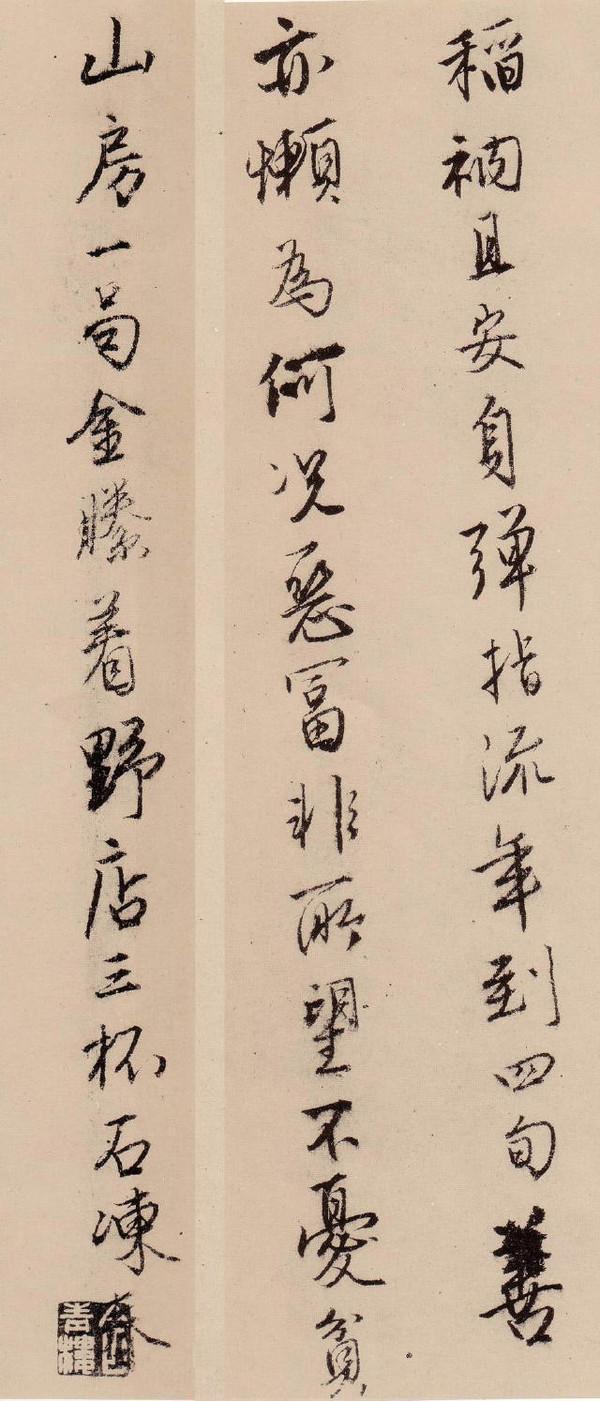 稻衲且安身彈指流年到四旬善
亦懶為何況惡富非所望不憂貧
山房一局金縢着野店三杯石凍春